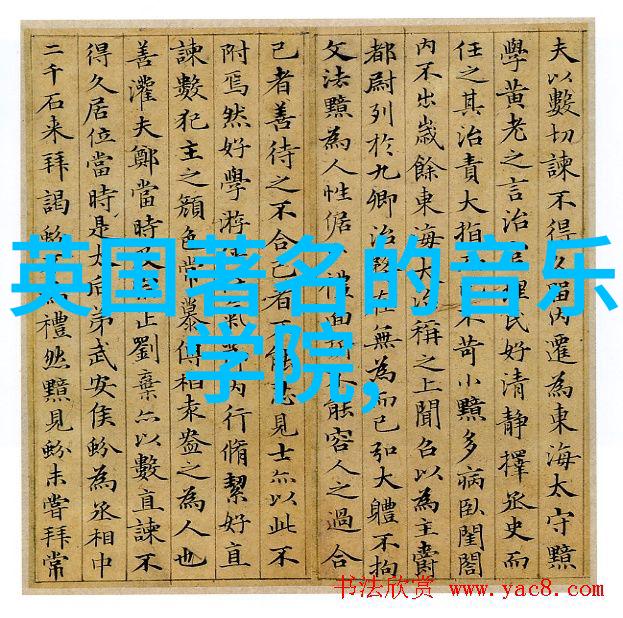 夫以數切諫不得久留內遷為東海太守黯
學黃老之言治民好清靜擇丞史而
任之其治責大指不苛小黯多病臥閨閤
內不出歲餘東海大治稱之上聞召以為主爵
都尉列於九卿治務在無為而已弘大體不拘
文法黯為人性倨禮面折不能容人之過合
己者善待之不合己者不能忍見士亦以此不
附焉然好學游氣節內行脩絜好直
諫數犯主之顏色常慕傅柏袁盎之為人也
善灌夫鄭當時正劉棄亦以數直諫不
得久居位當時是太后弟武安侯蚡為丞相中
二千石来拜謁蚡禮然黯見蚡未嘗拜常
英国著名的音乐
学院,
书法欣赏 www.yac8.com